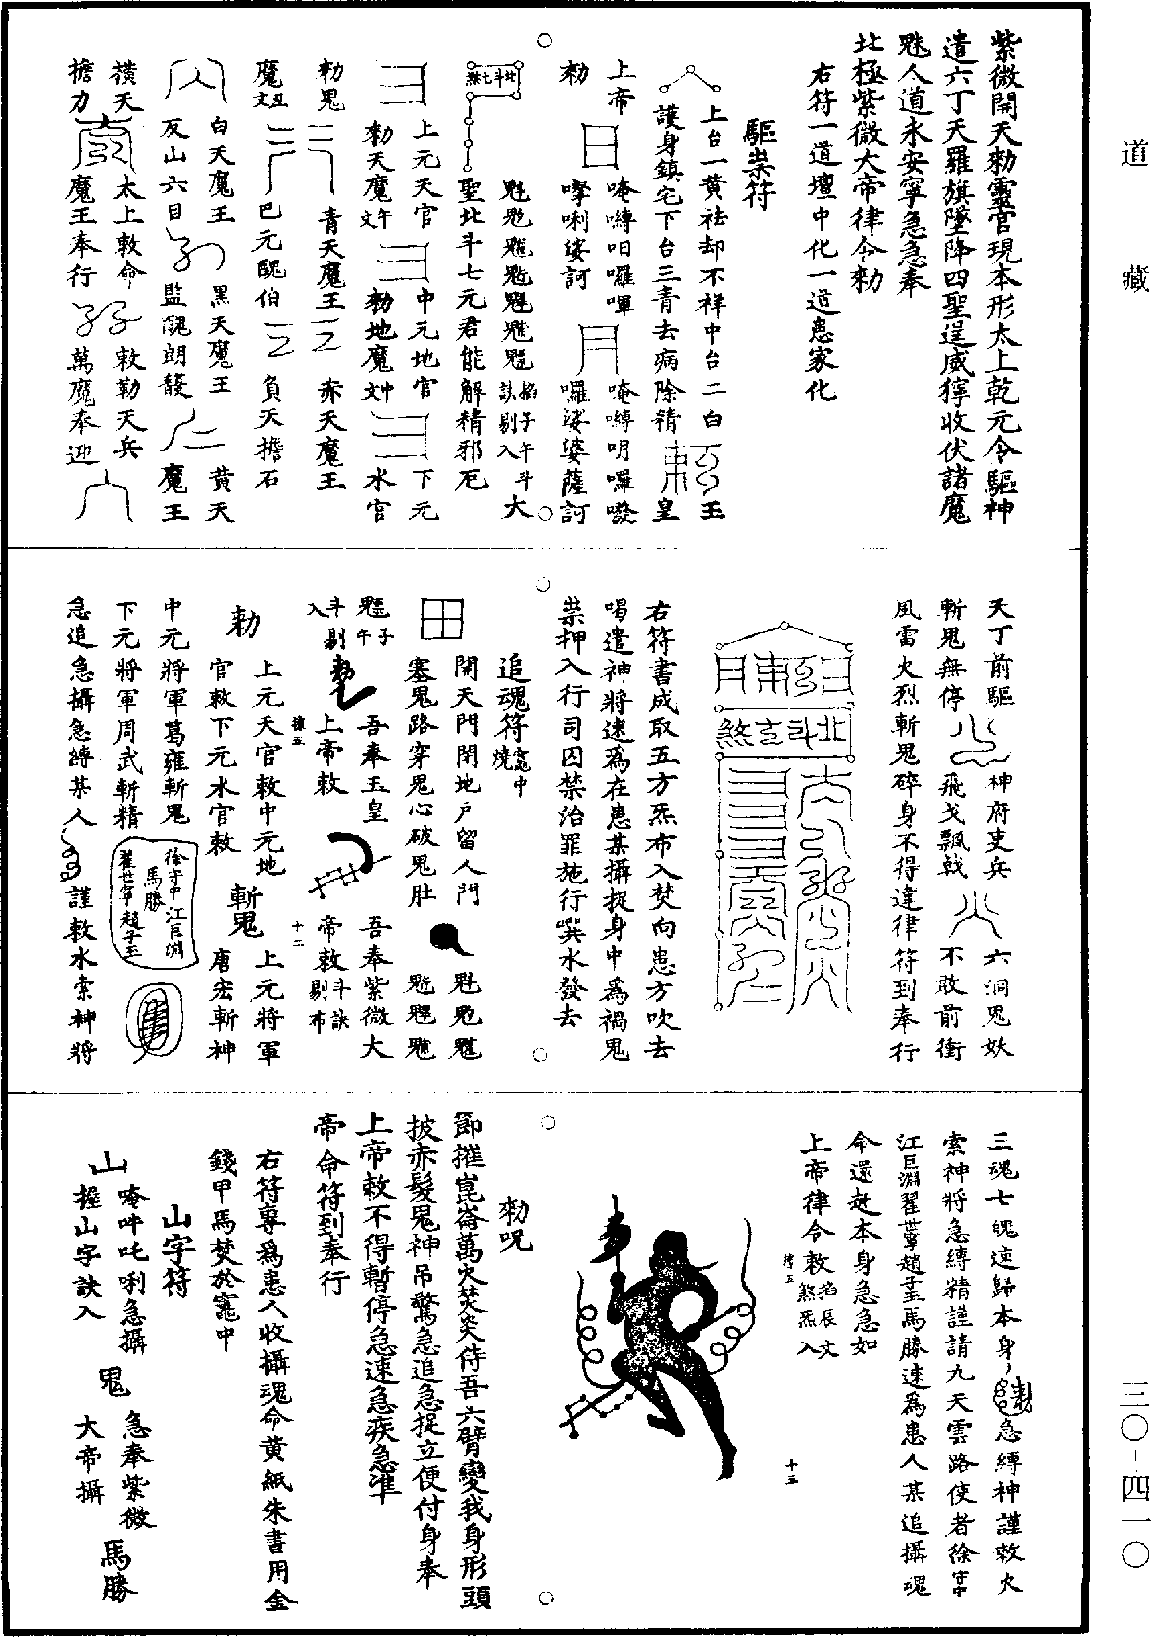 紫微開天勑靈官現本形太上乾元令驅神
遣六丁天羅旗墜降四聖逞威獰收伏諸魔
魅人道永安寧急急奉
北極紫微大帝律令勑
右符一道壇中化一道患家化
驅祟符
上台一黃祛却不祥中台二白 玉
護身鎮宅下台三青去病除精 皇
上帝 日 唵嚩呾囉㖶 月 唵嚩明囉
勑 㗚唎娑訶 囉娑婆薩訶
北斗七煞 魁 掐子午斗訣剔入 大
聖北斗七元君能解精邪厄
上元天官 中元地官 下元
勑天魔文午 勑地魔文 水官
勑鬼 青天魔王 赤天魔王
魔文丑 巴元醜伯 負天擔石
白天魔王 黑天魔王 黃天
反山六目 監醜朗馥 魔王
橫天 太上敕命 敕勒天兵
擔力 魔王奉行 萬魔奉迎
天丁前驅 神府吏兵 六洞鬼妖
斬鬼無停 飛戈飄戟 不敢前衝
風雷火烈斬鬼碎身不得違律符到奉行
北斗七玄煞
右符書成取五方炁布入焚向患方吹去
喝遣神將速爲在患某攝捉身中爲禍鬼
祟押入行司囚禁治罪施行噀水發去
追魂符竈中燒
開天門閉地戶留人門
塞鬼路穿鬼心破鬼肚
子午斗剔入 勑 吾奉玉皇 吾奉紫微大
上帝敕 帝敕斗訣剔布
勑 上元天官敕中元地 上元將軍
官敕下元水官敕 斬鬼 唐宏斬神
中元將軍葛雍斬鬼 徐守中江巨淵
下元將軍周武斬精 馬勝 翟世寧趙子玉
急追急攝急縛某人 謹敕水索神將
三魂七魄速歸本身 勑 急縛神謹敕火
索神將急縛精謹請九天雲路使者徐守中
江巨淵翟世寧趙子玉馬勝速爲患人某追攝魂
命還赴本身急急如
上帝律令敕 掐辰文煞炁入
十三
勑呪
節摧崑崙萬火焚炎侍吾六臂變我身形頭
披赤髮鬼神吊驚急追急捉立便付身奉
上帝敕不得暫停急速急疾急準
帝命符到奉行
右符專爲患人收攝魂命黃紙朱書用金
錢甲馬焚於竈中
山字符
山 唵吽吒唎急攝 鬼 急奉紫微 馬勝
握山字訣入 大帝攝
十二
道藏
三〇-四一〇